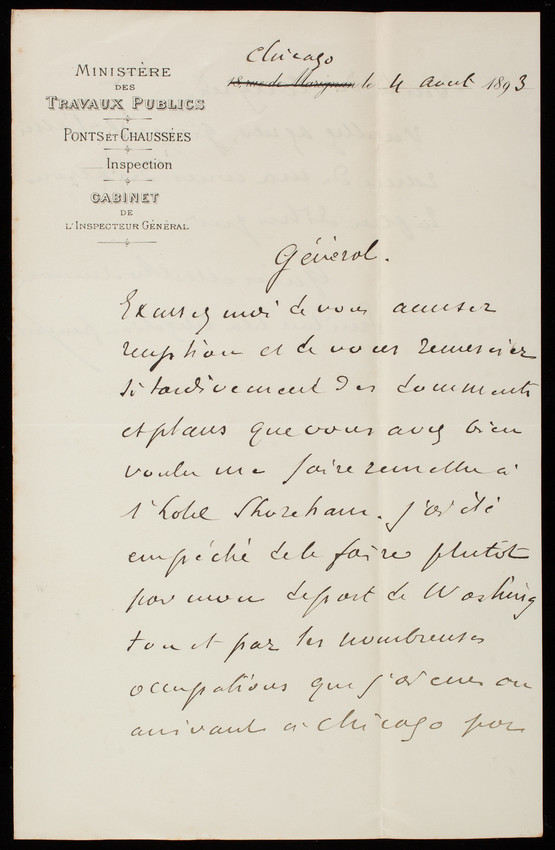 Chicago
MINISTÈRE
DES
TRAVAUX PUBLICS
PONTS ET CHAUSSÉES
Inspection
CABINET
DE
L'INSPECTEUR GÉNÉRAL
18, rue de Marignan le 4 avril 1893
Général.
Excusez moi de vous accuser
reception et de vous remercier
si tardivement des documents
et plans que vous avez bien
voulu me faire remettre à
l'hotel Shoreham. j'ai été
empéché de le faire plutôt
par mon depart de Washing
ton et par les nombreuses
occupations que j'ai eues en
arrivant à Chicago par